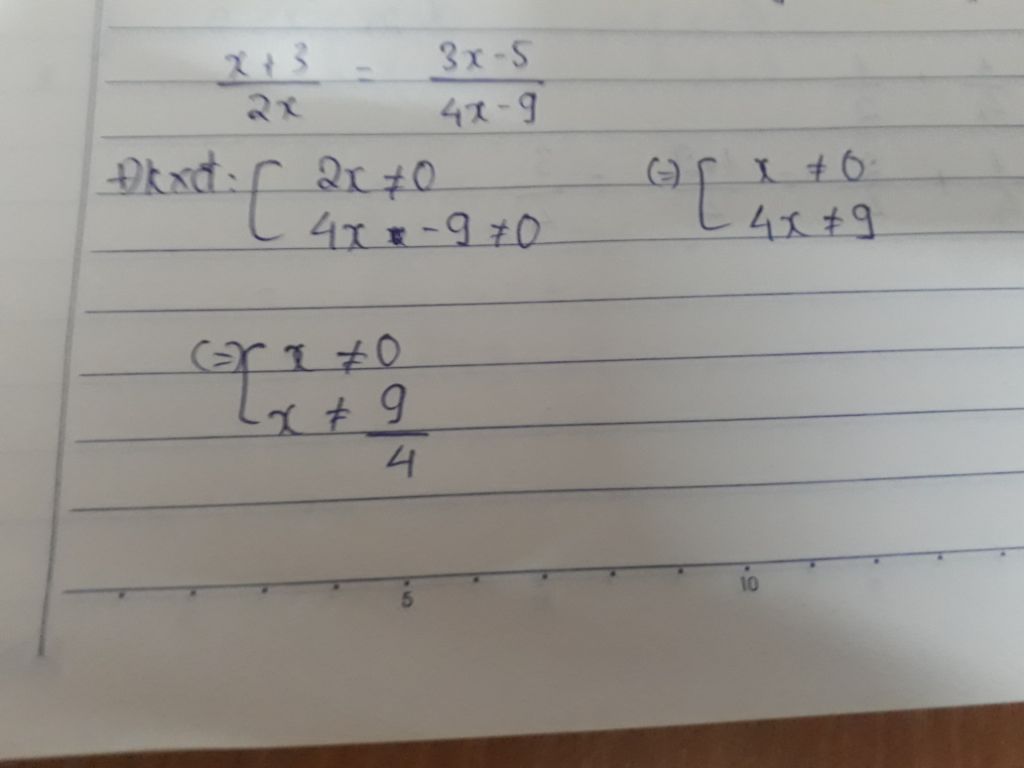 x + 3 / 2x = 3x - 5 / 4x - 9
Đkxđ: { 2x ≠ 0 (=) { x ≠ 0
4x - 9 ≠ 0 4x ≠ 9
(=) { x ≠ 0
x ≠ 9 / 4
5 10